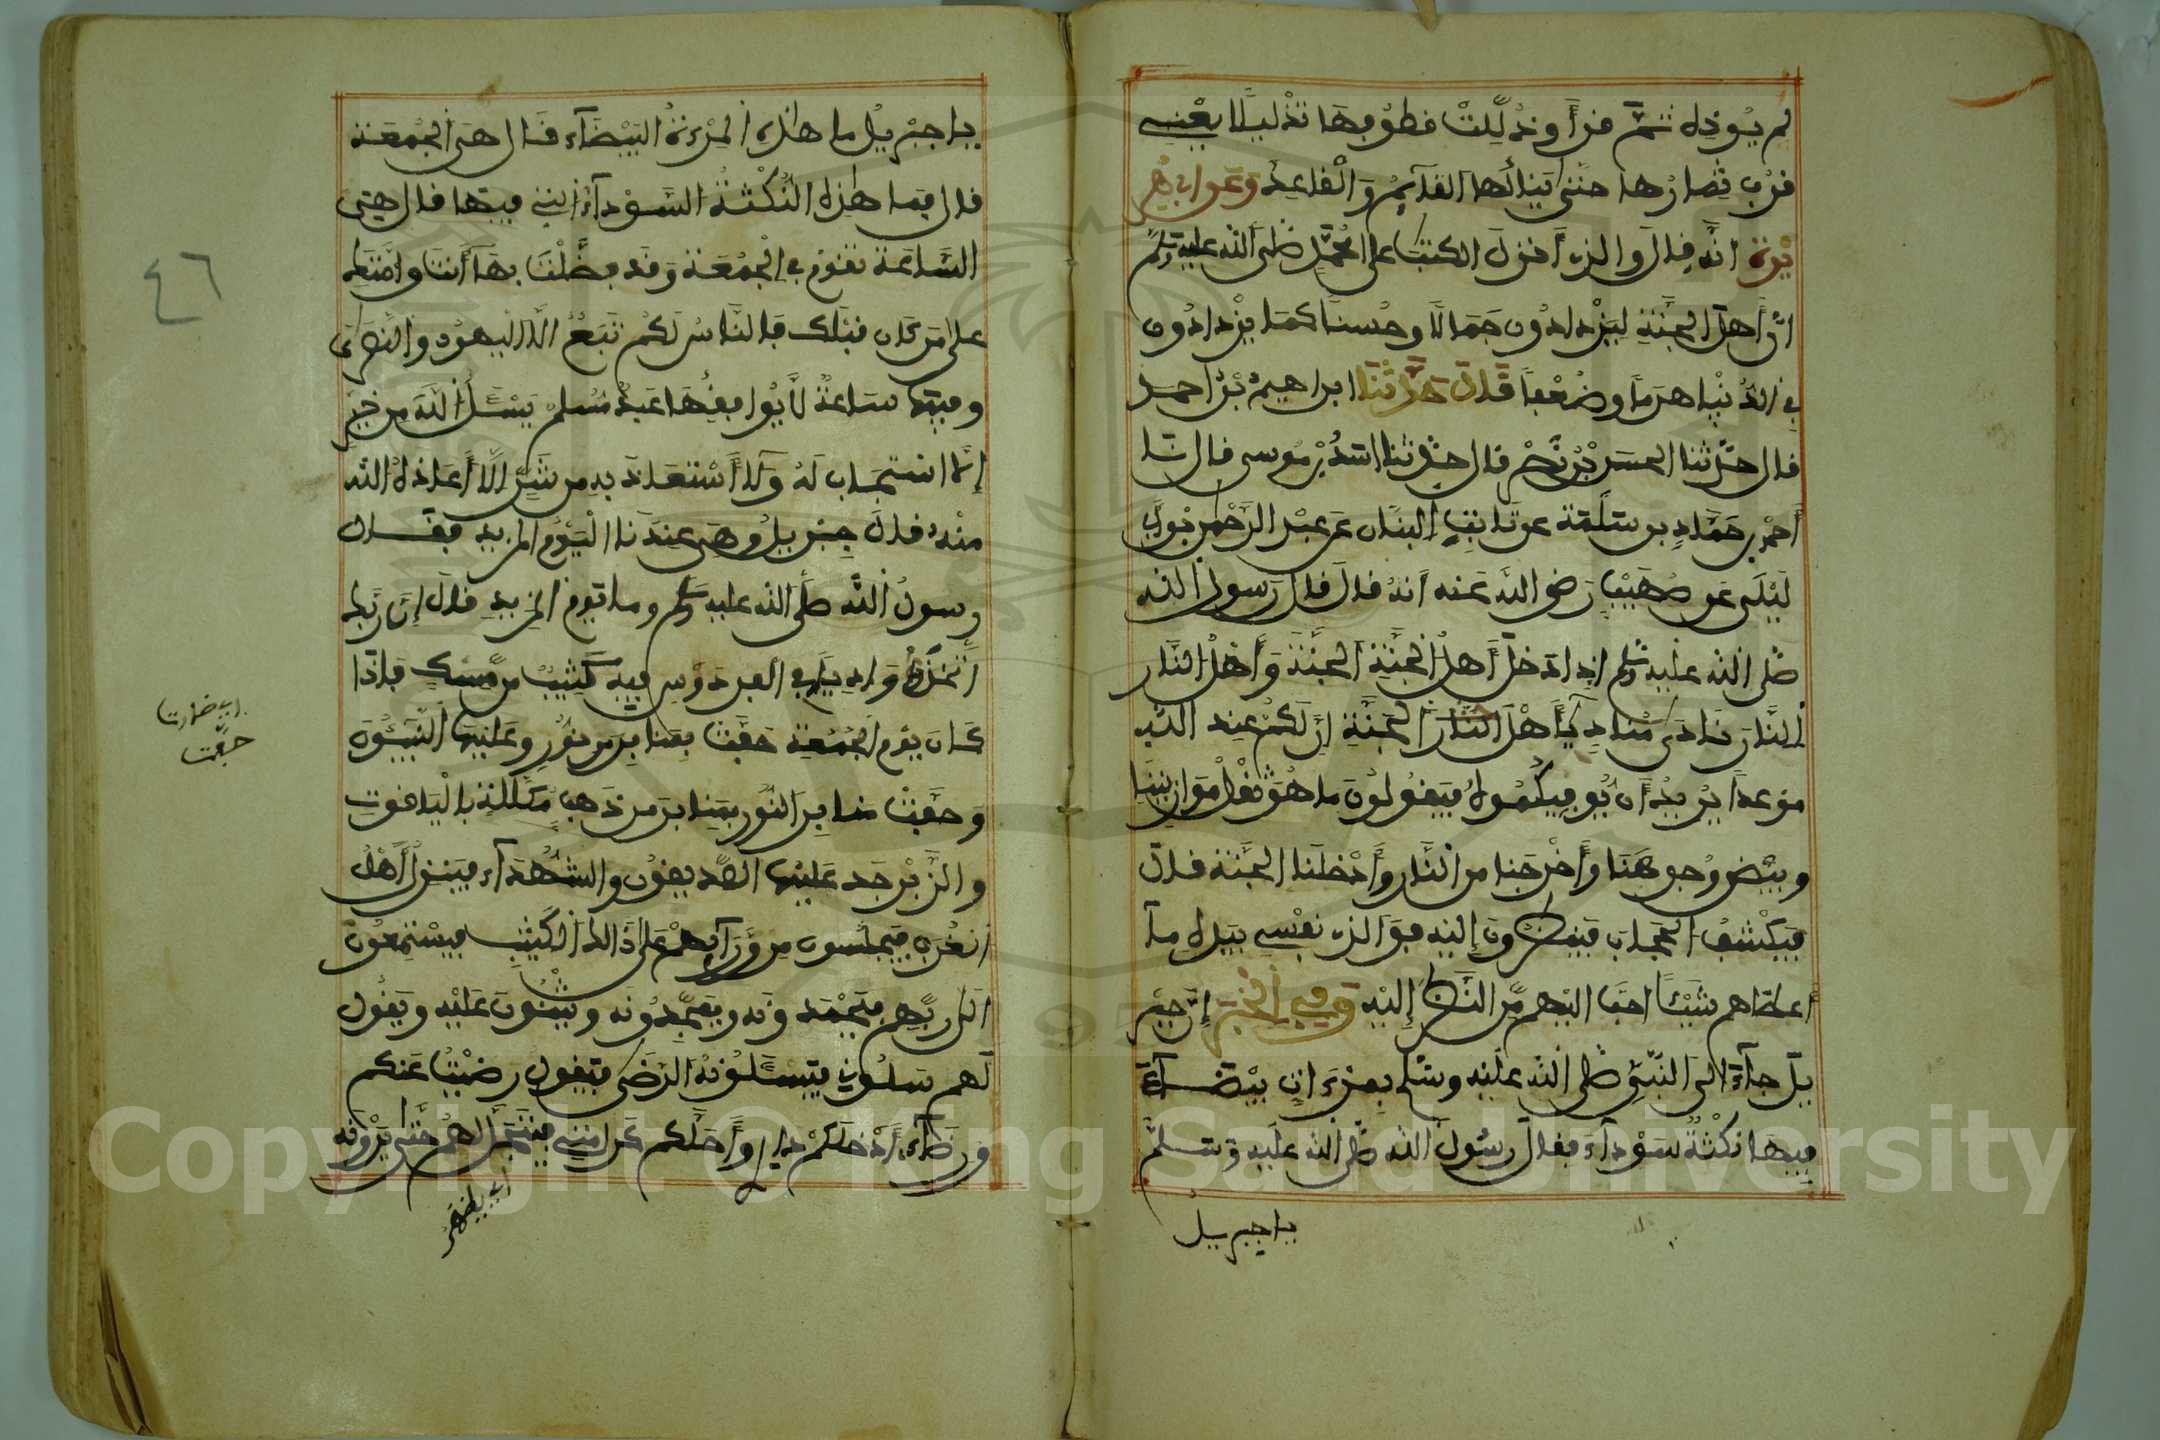 لم يوذه ثم قرأ وذللت قطوفها تذليلا يعني
قرب ثمارها حتى ينالها القآيم والقاعد وعن ابى هر
يرة انه قال والذى أنزل الكتب على محمد صلى الله عليه وسلم
ان أهل الجنة ليزدادون جمالا وحسنا كما يزدادون
في الدنيا هرما وضعفا قال حدثنا ابراهيم بن احمد
قال حدثنا الحسن بن قال حدثنا اسد بن موسى قال نا
حماد بن سلمة عن ثابت البنان عن عبد الرحمن بن أبي
ليلى عن صهيب رضى الله عنه انه قال قال رسول الله
صلى الله عليه وسلم إذا دخل أهل الجنة الجنة وأهل النار
النار نادى مناد يأهل الجنة إن لكم عند الله
موعدا يريد أن يوفيكموه فيقولون ما هو ثقل موازيننا
وبيض وجوهنا وأخرجنا من النار وأدخلنا الجنة قال
فيكشف الحجاب فينظرون إليه فوالذى نفسي بيده مآ
أعطاهم شيئا احبا اليهم من النظر إليه وفي الخبر إن جبر
يل جآء الى النبي صلى الله عليه وسلم بمرءاة بيضآء
فيها نكتة سودآء فقال رسول الله صلى الله عليه وسلم
يا جبريل
ياجبريل ما هذه المرءة البيضآء قال هى الجمعة
قال فما هذه النكتة السودآء التي فيها قال هى
الساعة تقوم في الجمعة وقد فضلت بها أنت وامتك
على من كان قبلك فالناس لكم تبع اليهود والنصرى
وفيها ساعة لا يوافقها عبد مسلم يسئل الله من خير
إلا استجاب له ولا أستعاذ به من شر إلا أعاذه الله
منه قال جبريل وهى عندنا اليوم المزيد فقال
رسول الله صلى الله عليه وسلم وما يوم المزيد قال إن ربك
أتخذ واديا في الفردوس فيه كثيب من مسك فإذا
كان يوم الجمعة حفت بمنابر من نور وعليها النبيئون
وحفت منابر النور بمنابر من ذهب مكللة بالياقوت
والزبرجد عليها الصديقون والشهدآء فينزل أهل
الغرف فيجلسون من ورآيهم على ذالك الكثيب فيستمعون
الى ربهم فيحمدونه ويمجدونه ويثنون عليه ويقول
لهم سلوني فيسئلونه الرضى فيقول رضيت عنكم
ورضآءى أدخلكم دارى وأحلكم كرامتي فيتجلى لهم حتى يرونه
اي يظهر
٤٦
اي ضارت
حفت
Copyright © King Saud University